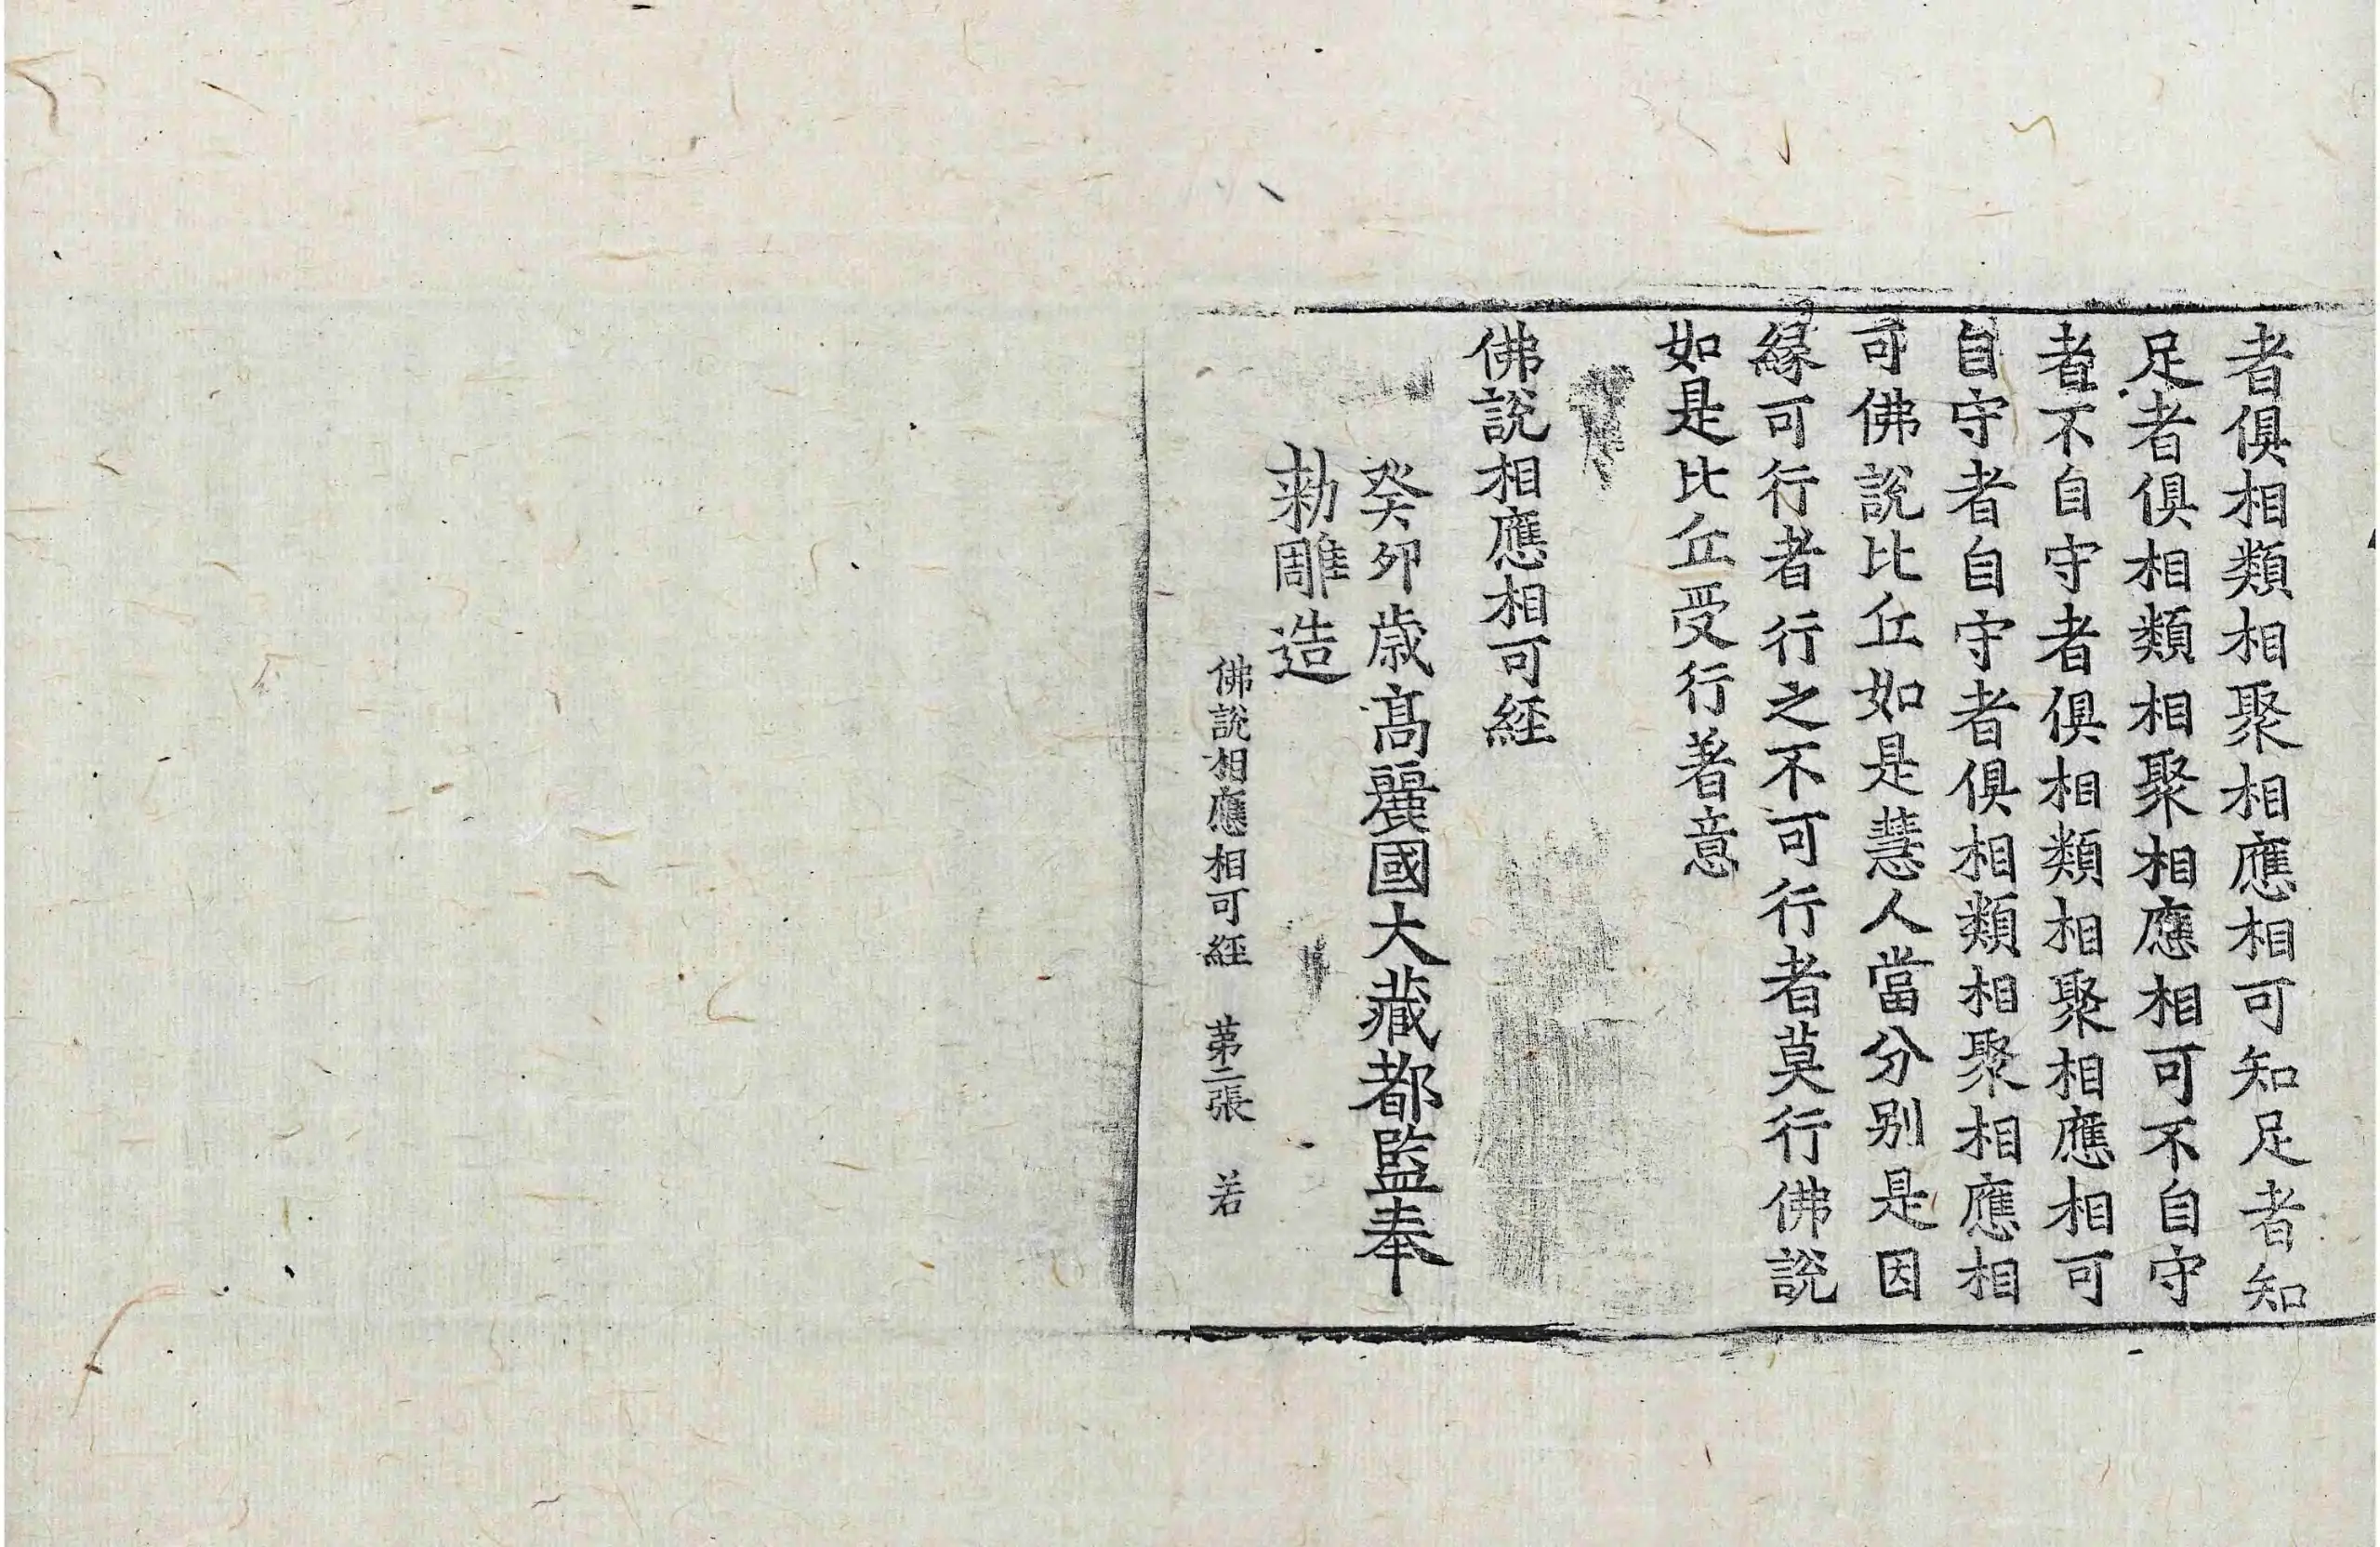 者俱相類相聚相應相可知足者知
足者俱相類相聚相應相可不自守
者不自守者俱相類相聚相應相可
自守者自守者俱相類相聚相應相
可佛說比丘如是慧人當分別是因
緣可行者行之不可行者莫行佛說
如是比丘受行著意
佛說相應相可經
癸卯歲高麗國大藏都監奉
勅雕造
佛說相應相可經 苐二張 若